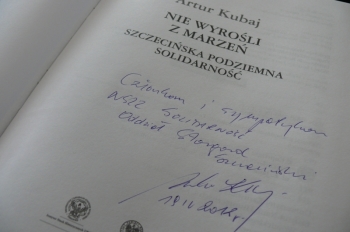 Artur Kubaj
NIE WYROŚLI
Z MARZEŃ
SZCZECIŃSKA PODZIEMNA
SOLIDARNOŚĆ
Członkom i sympatykom
NSZZ Solidarność
Oddział Stargard
Szczeciński